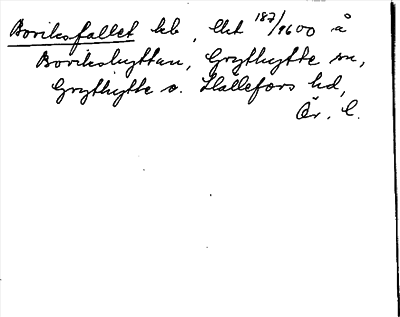 Boriksfallet hb, Ekt 187/9600 å
Borikshyttan, Grythytte sn,
Grythytte o. Hällefors hd,
Ör. l.